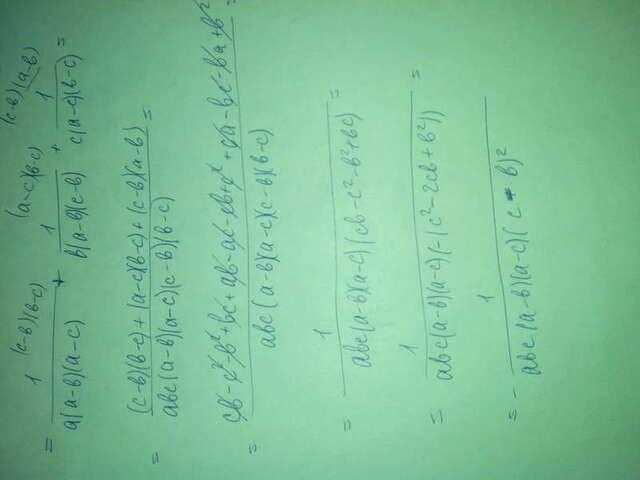 = 1 (c-b)(b-c) / a(a-b)(a-c) + 1 (a-c)(b-c) / b(a-b)(c-b) + 1 (c-b)(a-b) / c(a-c)(b-c) =
= (c-b)(b-c)+(a-c)(b-c)+(c-b)(a-b) / abc(a-b)(a-c)(c-b)(b-c) =
= cb-c²-b²+bc+ab-ac-cb+c²+ca-bc-ba+b² / abc(a-b)(a-c)(c-b)(b-c) =
= 1 / abc(a-b)(a-c)(cb-c²-b²+bc) =
= 1 / abc(a-b)(a-c)(-(c²-2cb+b²)) =
= - 1 / abc(a-b)(a-c)(c-b)²